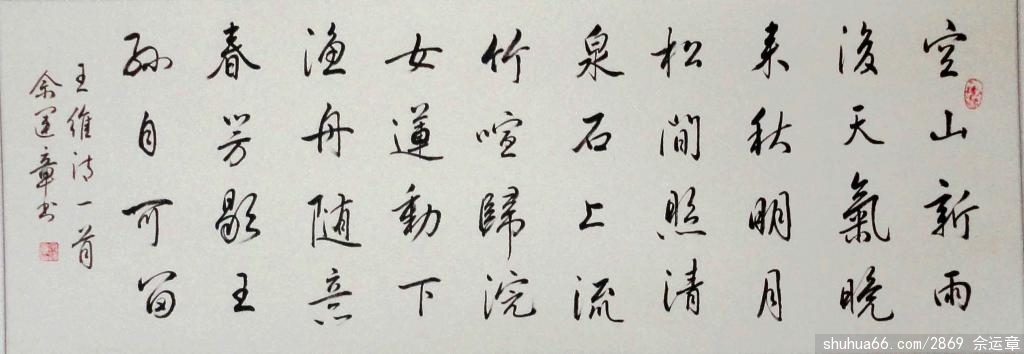 空山新雨
後天氣晚
来秋明月
松间照清
泉石上流
竹喧歸浣
女蓮動下
渔舟随意
春芳歇王
孫自可留
王維诗一首
佘運章书
shuhua66.com/2869 佘运章